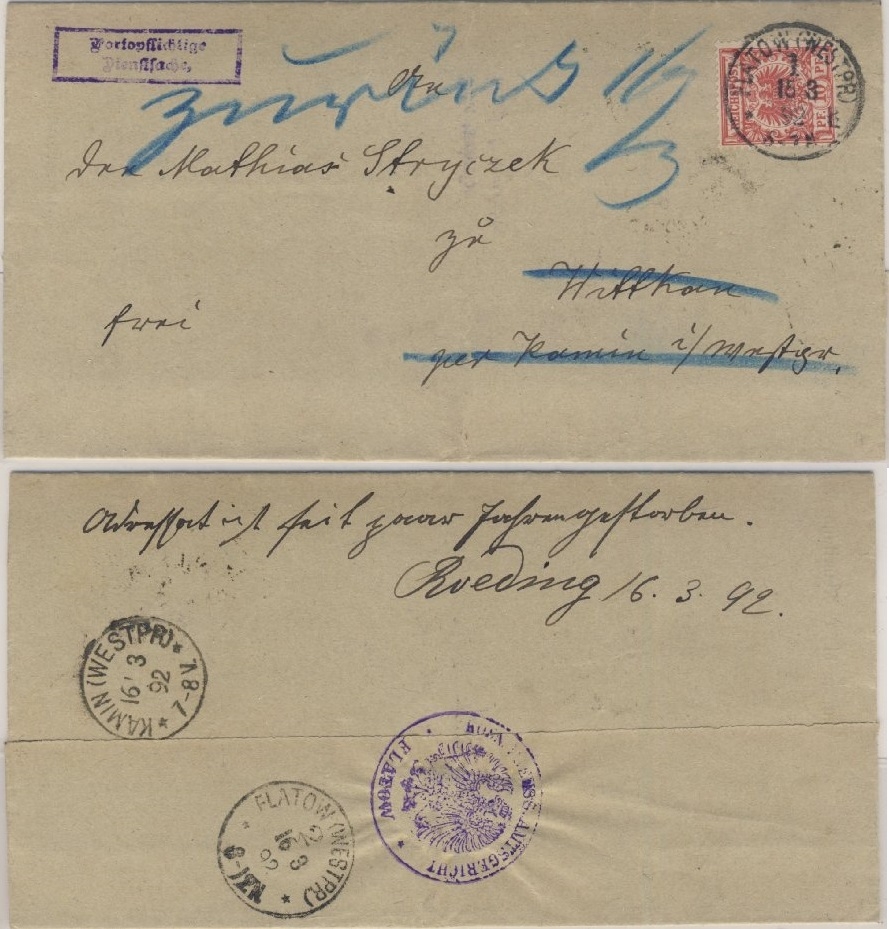 Portopflichtige
Dienstsache,
zurück 16/3
An
den Mathias Stryczek
zu
Wittkau
per Kamin i/Westpr.
frei
REICHSPOST 10 PF.
FLATOW (WESTPR)
1
16 3
92
Adressat ist seit paar Jahren gestorben.
Roeding 16. 3. 92.
KAMIN (WESTPR)
16 3
92
7-8 V.
KÖN. PREUSS. AMTSGERICHT
FLATOW
FLATOW (WESTPR)
16 3
92